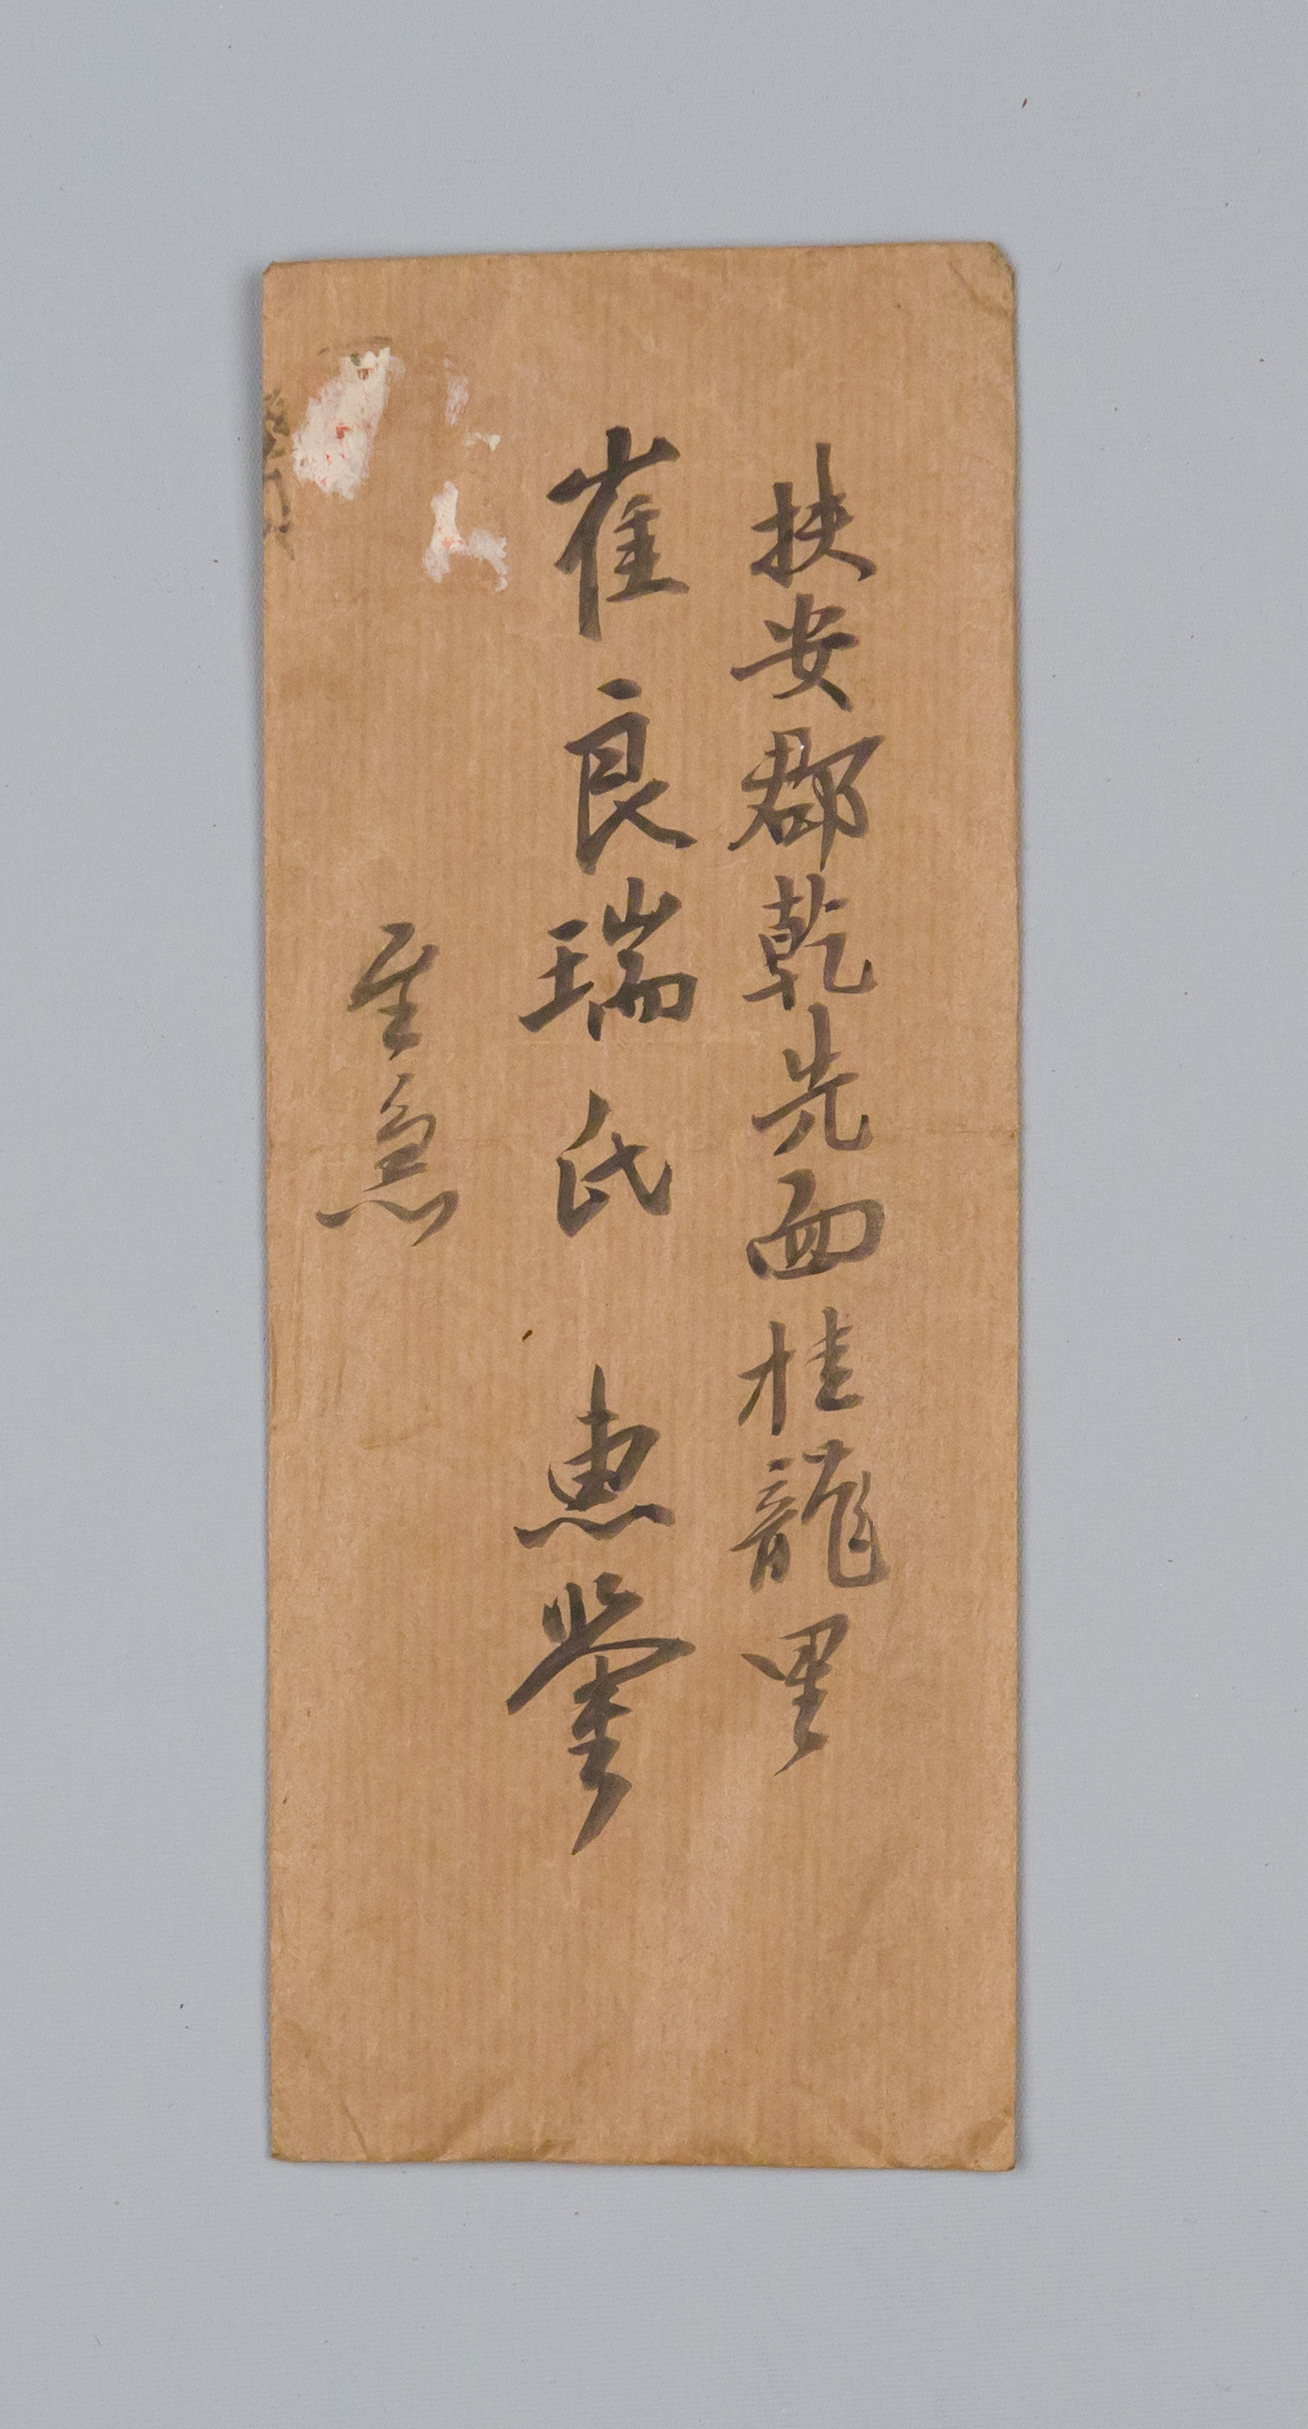 扶安郡乾先面桂龍里
崔良瑞氏 惠鑒
至急